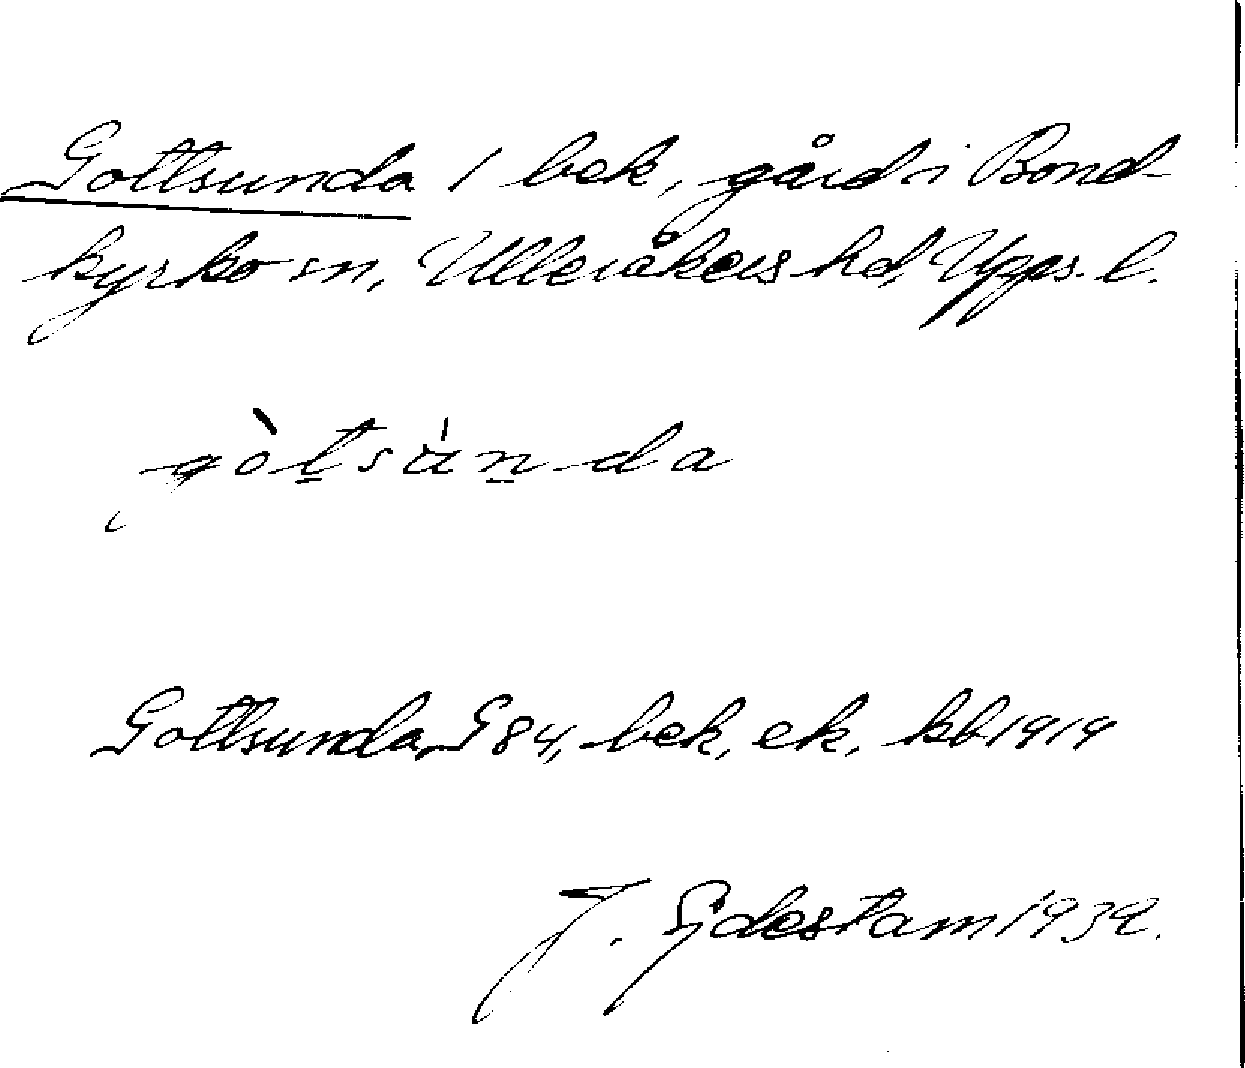 Gottsunda 1 bek, gård i Bond-
kyrko sn, Ulleråkers hd Upps. l.
gòt̲sùn̲da
Gottsunda, G 84, bek, ek, kb 1919
J. Sjdestam 1939.